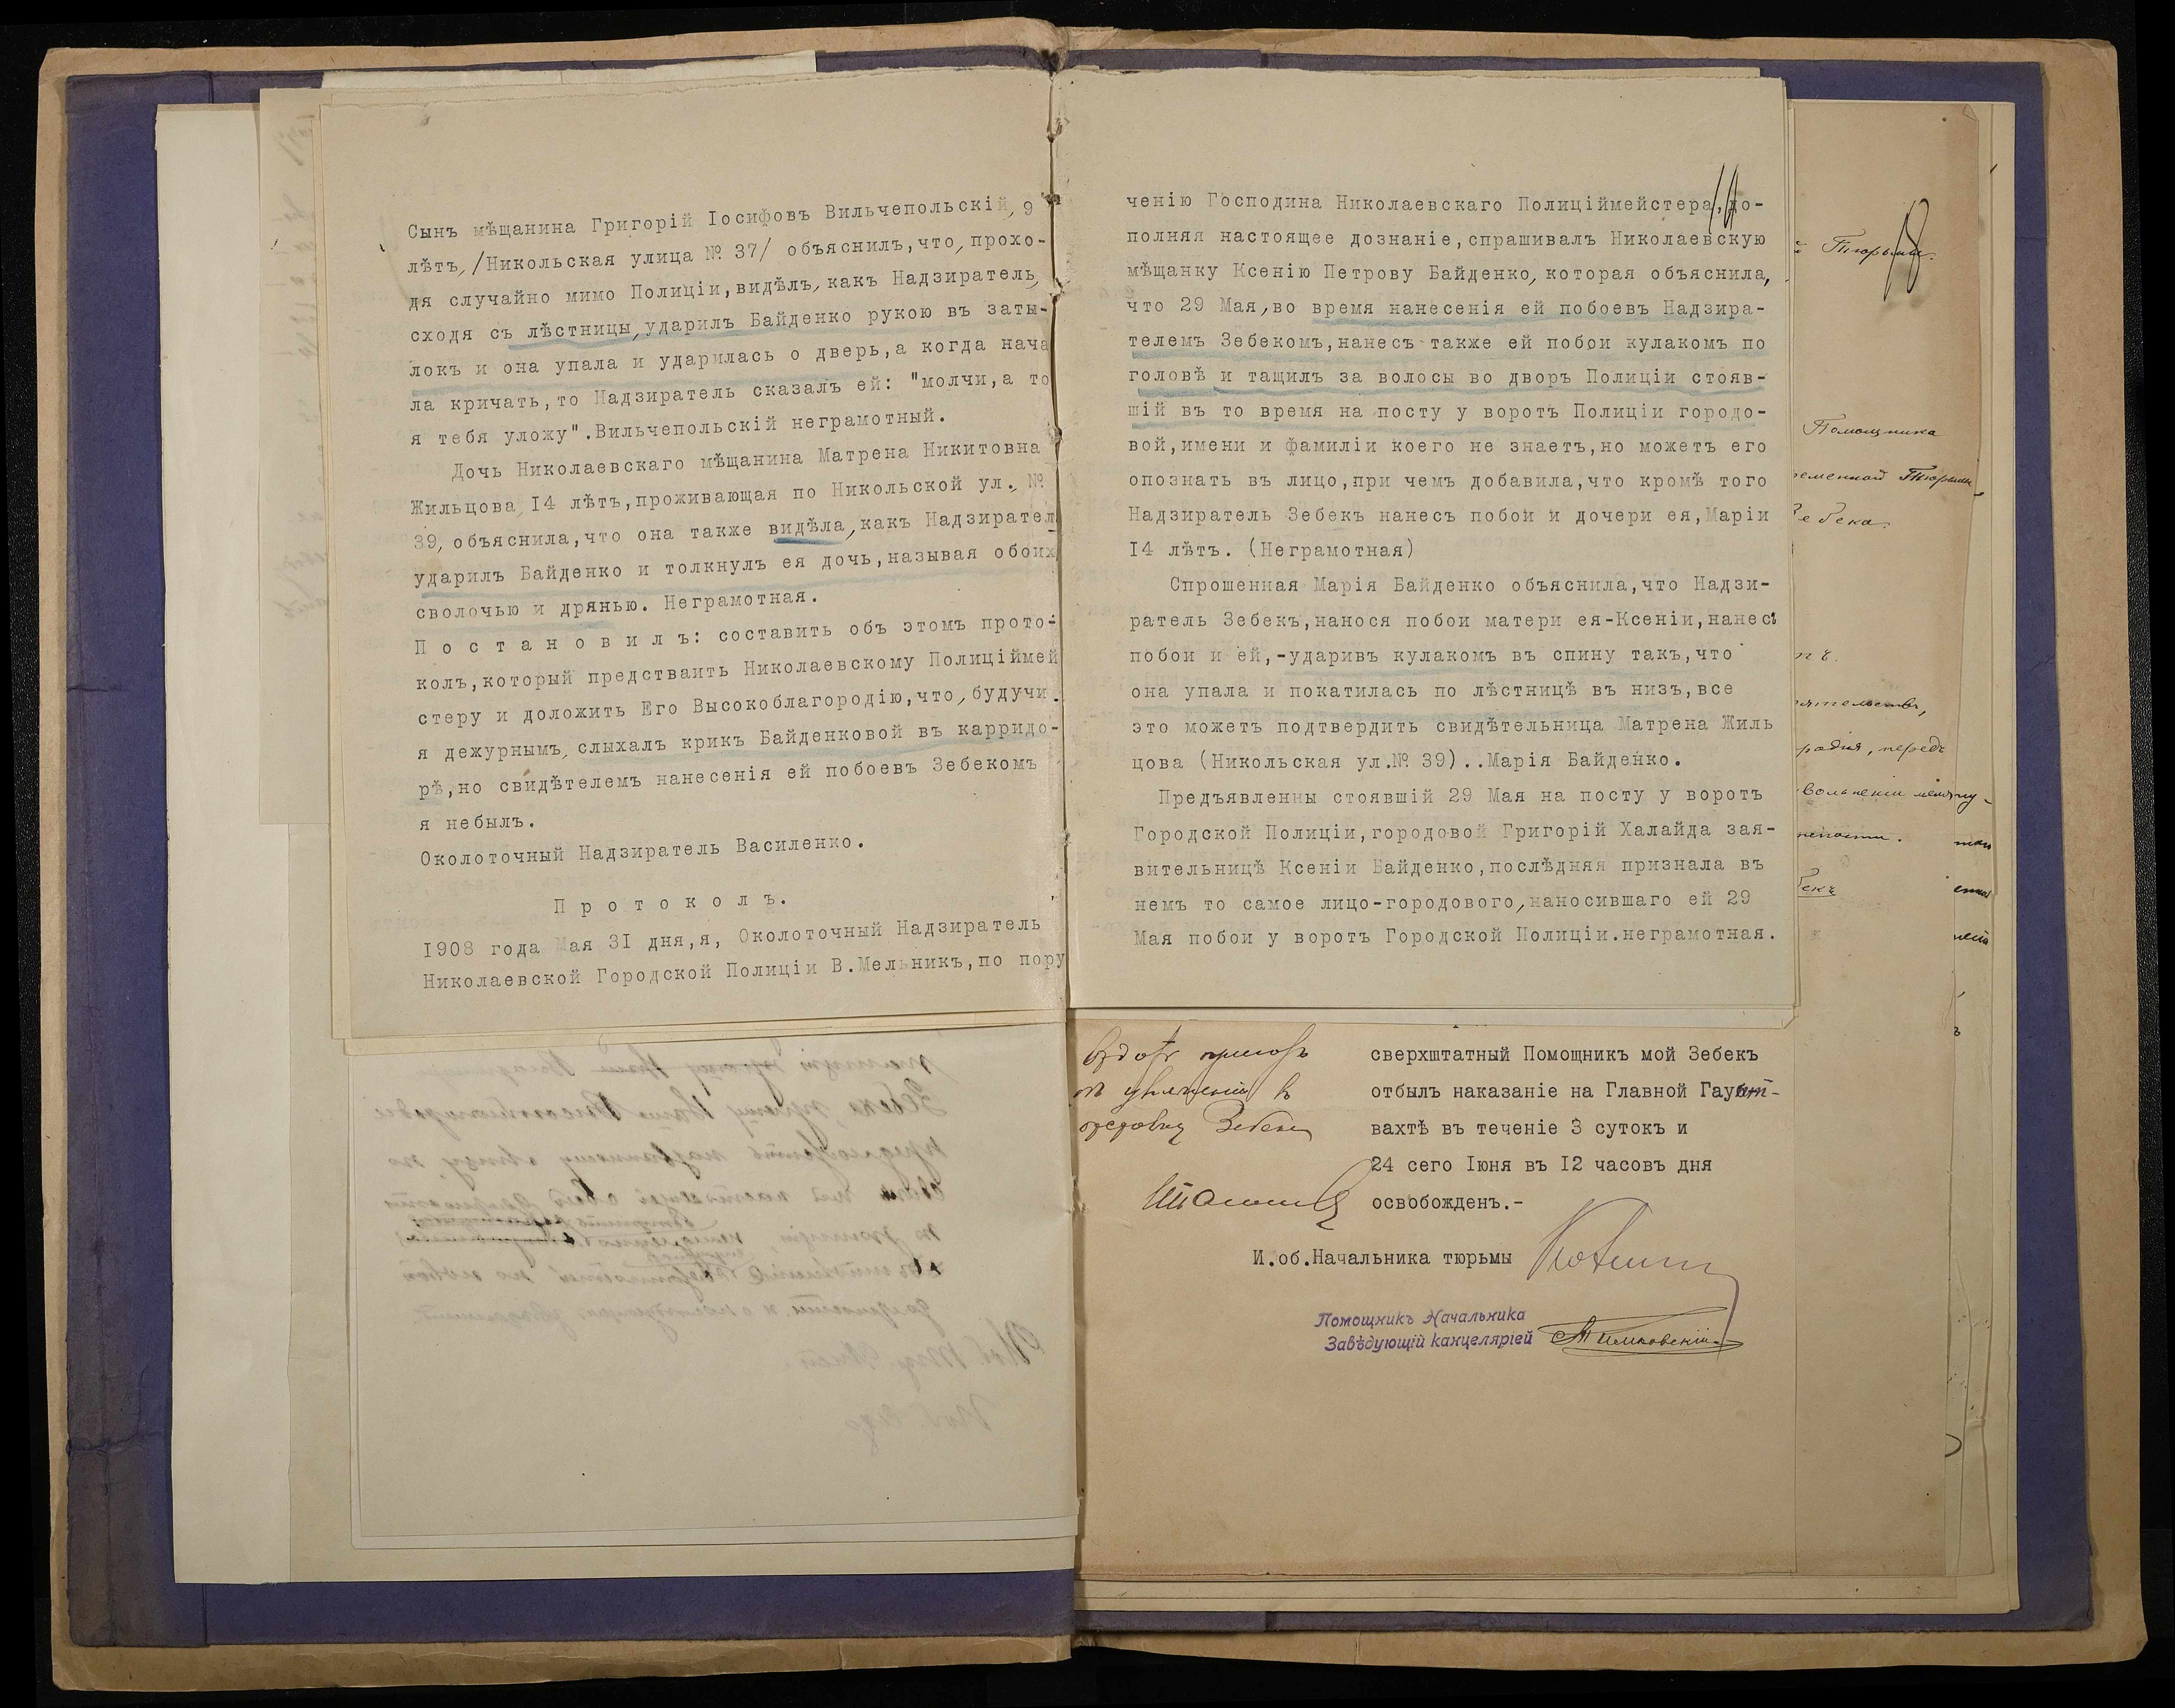 Сынъ мѣщанина Григорій Іосифовъ Вильчепольскій, 9
лѣтъ,/Никольская улица № 37/ объяснилъ,что,прохо-
дя случайно мимо Полиціи,видѣлъ,какъ Надзиратель,
сходя съ лѣстницы,ударилъ Байденко рукою въ заты-
локъ и она упала и ударилась о дверь,а когда нача
ла кричать,то Надзиратель сказалъ ей: "молчи,а то
я тебя уложу".Вильчепольскій неграмотный.
Дочь Николаевскаго мѣщанина Матрена Никитовна
Жильцова,14 лѣтъ,проживающая по Никольской ул., №
39,объяснила,что она также видѣла,какъ Надзирател
ударилъ Байденко и толкнулъ ея дочь,называя обоих
сволочью и дрянью. Неграмотная.
П о с т а н о в и л ъ: составить объ этомъ прото-
колъ,который предстваить Николаевскому Полиціймей
стеру и доложить Его Высокоблагородію,что,будучи
я дежурнымъ,слыхалъ крикъ Байденковой въ карридо-
рѣ,но свидѣтелемъ нанесенія ей побоевъ Зебекомъ
я небылъ.
Околоточный Надзиратель Василенко.
П р о т о к о л ъ.
1908 года Мая 31 дня,я, Околоточный Надзиратель
Николаевской Городской Полиціи В.Мельникъ,по пору
ченію Господина Николаевскаго Полиціймейстера,до-
полняя настоящее дознаніе,спрашивалъ Николаевскую
мѣщанку Ксенію Петрову Байденко,которая объяснила,
что 29 Мая,во время нанесенія ей побоевъ Надзира-
телемъ Зебекомъ,нанесъ также ей побои кулакомъ по
головѣ и тащилъ за волосы во дворъ Полиціи стояв-
шій въ то время на посту у воротъ Полиціи городо-
вой,имени и фамиліи коего не знаетъ,но можетъ его
опознать въ лицо,при чемъ добавила,что кромѣ того
Надзиратель Зебекъ нанесъ побои и дочери ея,Маріи
14 лѣтъ. (Неграмотная)
Спрошенная Марія Байденко объяснила,что Надзи-
ратель Зебекъ,нанося побои матери ея-Ксеніи,нанесъ
побои и ей,-ударивъ кулакомъ въ спину такъ,что
она упала и покатилась по лѣстницѣ въ низъ,все
это можетъ подтвердить свидѣтельница Матрена Жиль
цова (Никольская ул.№ 39)..Марія Байденко.
Предъявленны стоявшій 29 Мая на посту у воротъ
Городской Полиціи,городовой Григорій Халайда зая-
вительницѣ Ксеніи Байденко,послѣдняя признала въ
немъ то самое лицо-городового,наносившаго ей 29
Мая побои у воротъ Городской Полиціи.неграмотная.
Помощника
Зебека
сверхштатный Помощникъ мой Зебекъ
отбылъ наказаніе на Главной Гаупт-
вахтѣ въ теченіе 3 сутокъ и
24 сего Іюня въ 12 часовъ дня
освобожденъ.-
И.об.Начальника тюрьмы
Помощникъ Начальника
Завѣдующій канцеляріей